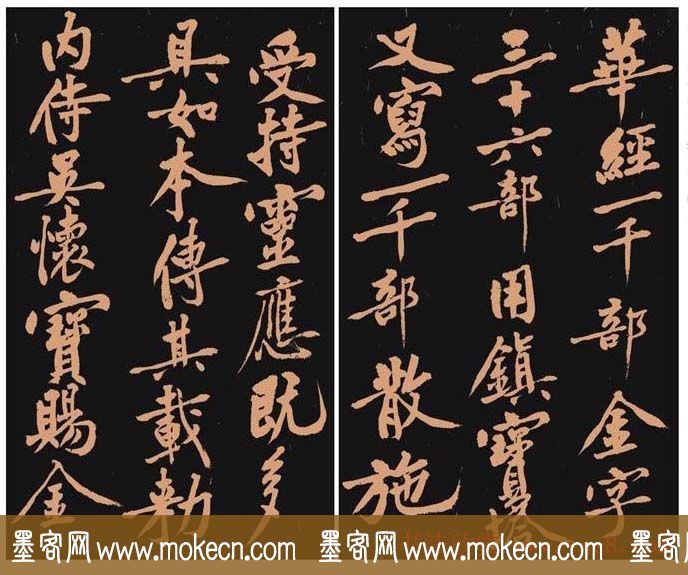 華經一千部金字
三十六部用鎮寶塔
又寫一千部散施
受持靈應既多
具如本傳其載勅
内侍吳懷寶賜金
墨客网 www.mokecn.com 墨客网 www.mokecn.com